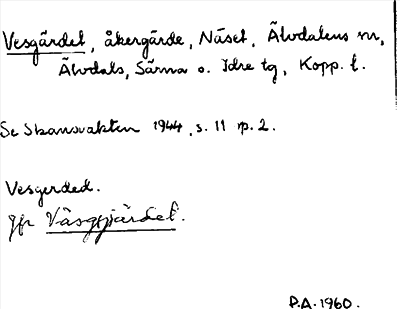 Vesgärdet, åkergärde, Näset, Älvdalens sn,
Älvdals, Särna o. Idre tg, Kopp. l.
Se Skansvakten 1944, s. 11 sp. 2.
Vesgerded.
Jfr Väsgjärdet.
P.A. 1960.